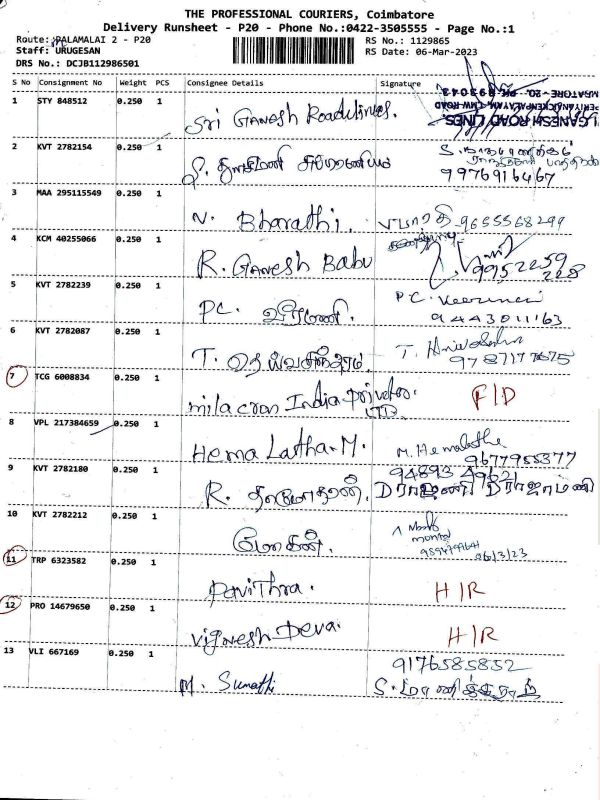 THE PROFESSIONAL COURIERS, Coimbatore
Delivery Runsheet - P20 - Phone No.:0422-3505555 - Page No.:1
Route: PALAMALAI 2 - P20
RS No.: 1129865
Staff: URUGESAN
RS Date: 06-Mar-2023
DRS No.: DCJB112986501
S No Consignment No Weight PCS Consignee Details Signature
1 STY 848512 0.250 1 Sri Ganesh Roadlines.
GANESH ROAD LINES
2 KVT 2782154 0.250 1
9976916467
3 MAA 295115549 0.250 1 N. Bharathi. பாரதி 9655568299
4 KCM 40255066 0.250 1 R. Ganesh Babu
99952259
228
5 KVT 2782239 0.250 1 PC. வீரமணி. P.C. Veeramani
9443011163
6 KVT 2782087 0.250 1 T. தெய்வசிகாமணி T.
9787177675
7 TCG 6008834 0.250 1 milacron India Private LTD F/D
8 VPL 217384659 0.250 1 Hema Latha.M. M. Hemalatha
9677955377
9 KVT 2782180 0.250 1 R. தாமோதரன். 94893 49621
10 KVT 2782212 0.250 1 மோகன்.
06/3/23
11 TRP 6323582 0.250 1 Pavithra. H/R
12 PRO 14679650 0.250 1 Vignesh Deva. H/R
13 VLI 667169 0.250 1 M. Sumathi 9176585852